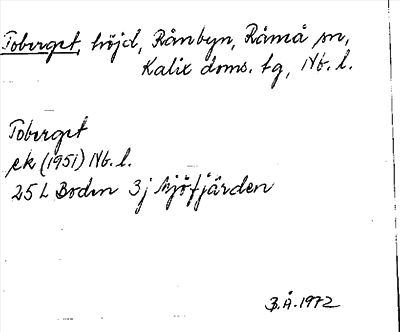 Toberget, höjd, Rånbyn, Råneå sn,
Kalix doms. tg, Nb. l.
Toberget
ek (1951) Nb. l.
25 L Boden 3j Mjöfjärden
B.Å. 1972